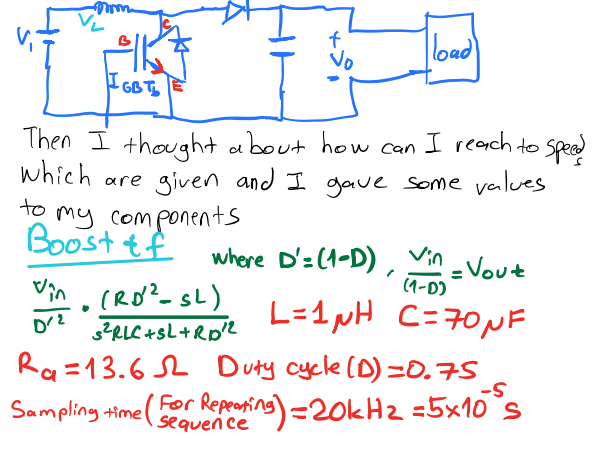 VL
C
Vi
B
+
Vo
load
IGBT
E
Then I thought about how can I reach to speeds
which are given and I gave some values
to my components
Boost tf
where D'=(1-D) , Vin/(1-D) = Vout
Vin/D'² • (RD'² - sL)/(s²RLC+sL+RD'²)
L=1μH C=70μF
Ra=13.6 Ω Duty cycle(D)=0.75
Sampling time (For Repeating sequence)=20kHz=5x10⁻⁵s